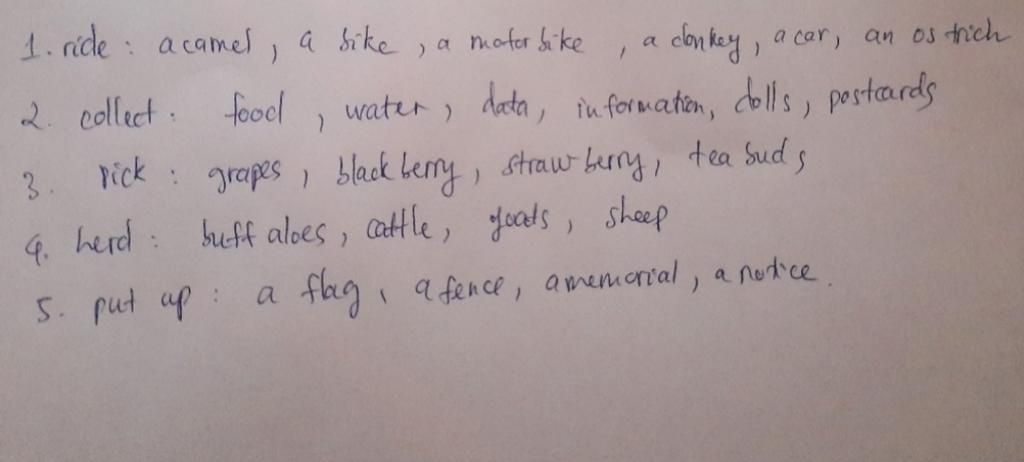 1. ride : a camel, a bike, a motorbike, a donkey, a car, an ostrich
2. collect : food, water, data, information, dolls, postcards
3. pick : grapes, blackberry, strawberry, tea buds
4. herd : buffaloes, cattle, goats, sheep
5. put up : a flag, a fence, a memorial, a notice.